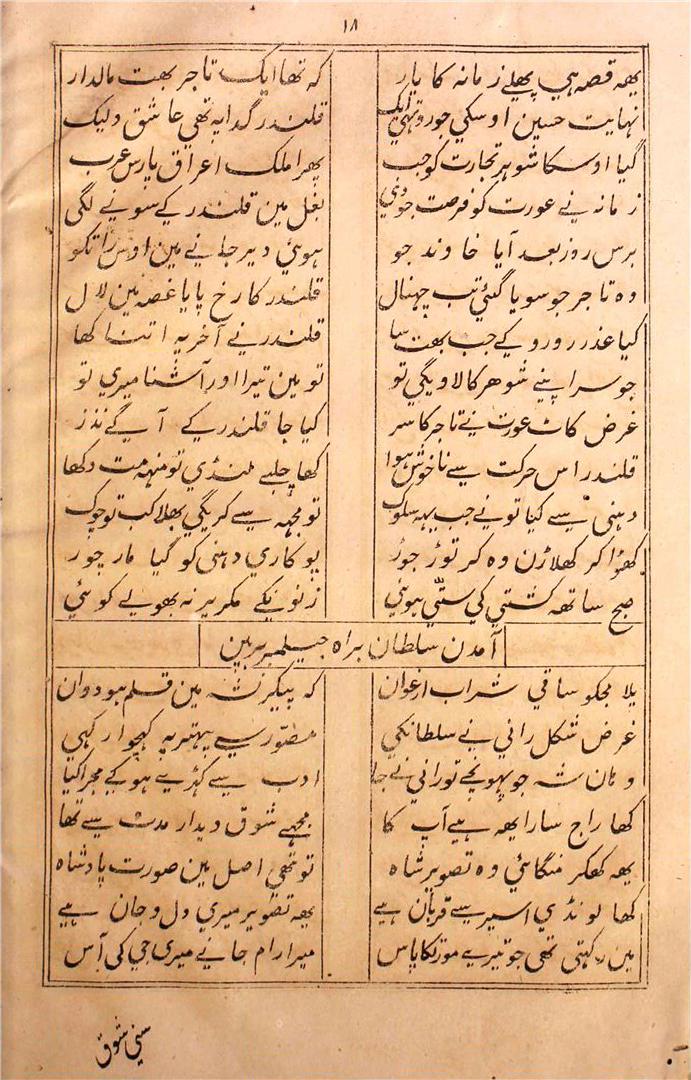 ۱۸
یهه قصه هي پچهلے زمانه کا یار که تها ایک تاجر بهت مالدار
نہایت حسین اوسکي جورو تهي ایک قلندر گدا پہ تهي عاشق ولیک
گیا اوسکا شوهر تجارت کو جب پهرا ملک اعراق پارس عرب
زمانه نے عورت کو فرصت جو دي بغل مین قلندر کے سونے لگی
برس روز بعد آیا خاوند جو هوئي دیر جانے مین اوس راتکو
وه تاجر جو سویا گئي تب چهنال قلندر کا رخ پایا غصه مین لال
کیا عذر رو رو کے جب بهت سا قلندر نے آخر یہ اتنا کها
جو سر اپنے شوهر کا لاویگي تو تو مین تیرا اور آشنا میري تو
غرض کاٹ عورت نے تاجر کا سر کیا جا قلندر کے آگے نذر
قلندر اس حرکت سے ناخوش هوا کها چلیے لنڈي تو منهه مت دکها
دهنی سے کیا تونے جب یهه سلوک تو مجهه سے کریگي بهلا کب تو چوک
کهڑا کر کهلاڑن وه کر توڑ جوڑ پوکاري دهنی کو گیا مار چور
صبح ساتهه کشتي کي ستّي هوئي زنونکے مکر پر نه بهولے کوئي
آمدن سلطان براه جیلمیر مین
پلا مجکو ساقي شراب ارغوان که پیکر نشه مین قلم هو دوان
غرض شکل راني نے سلطانکي مصوّر سے بہتر یہ کهچوا رکهي
وهان شه جو پهونچے تو راني نے جا ادب سے کهڑے هو کے مجرا کیا
کها راج سارا یهه هے آپ کا مجهے شوق دیدار مدت سے تها
یهه کهکر منگائي وه تصویر شاه تو تهي اصل مین صورت پادشاه
کها لونڈي اسیر سے قربان هے یهه تصویر میري دل و جان هے
مین رکهتي تهي جو تیرے مورتکا پاس میرا رام جانے میري جي کی آس
سني شوق